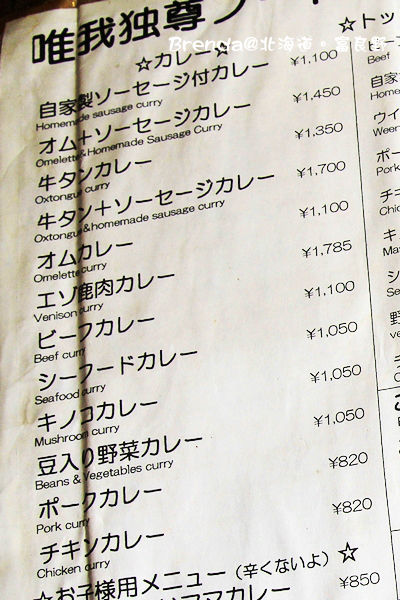 唯我独尊
Brenda@北海道。富良野
☆カレー☆
自家製ソーセージ付カレー ¥1,100
Homemade sausage curry
オム+ソーセージカレー ¥1,450
Omelette&Homemade Sausage Curry
牛タンカレー ¥1,350
Oxtongue curry
牛タン+ソーセージカレー ¥1,700
Oxtongue&homemade sausage curry
オムカレー ¥1,100
Omelette curry
エゾ鹿肉カレー ¥1,785
Venison curry
ビーフカレー ¥1,100
Beef curry
シーフードカレー ¥1,050
Seafood curry
キノコカレー ¥1,050
Mushroom curry
豆入り野菜カレー ¥1,050
Beans & Vegetables curry
ポークカレー ¥820
Pork curry
チキンカレー ¥820
Chicken curry
☆お子様用メニュー(辛くないよ)☆
¥850
☆トッ
Beef
自家
ウイ
Ween
ポー
Pork